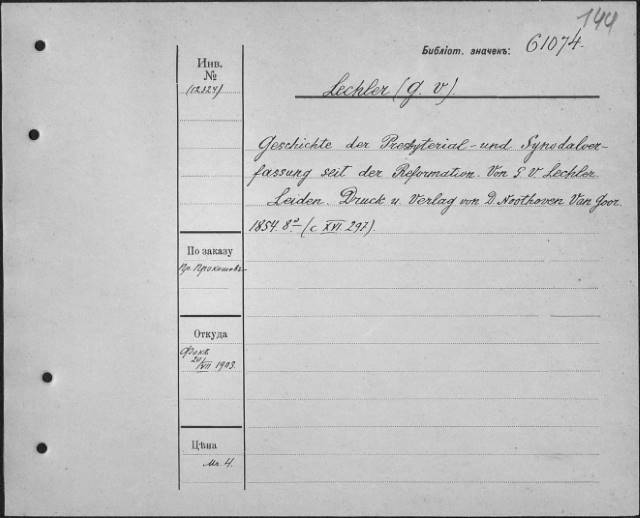 144
Библіот. значекъ: 61074.
Инв.
№
(12124)
Lechler (G. V).
Geschichte der Presbyterial- und Synodalver-
fassung seit der Reformation. Von G V. Lechler.
Leiden. Druck u. Verlag von D. Noothoven Van Goor.
1854. 8º (c XVI. 297).
По заказу
Откуда
Фокъ
20/VII 1903.
Цѣна
Мк. 4.